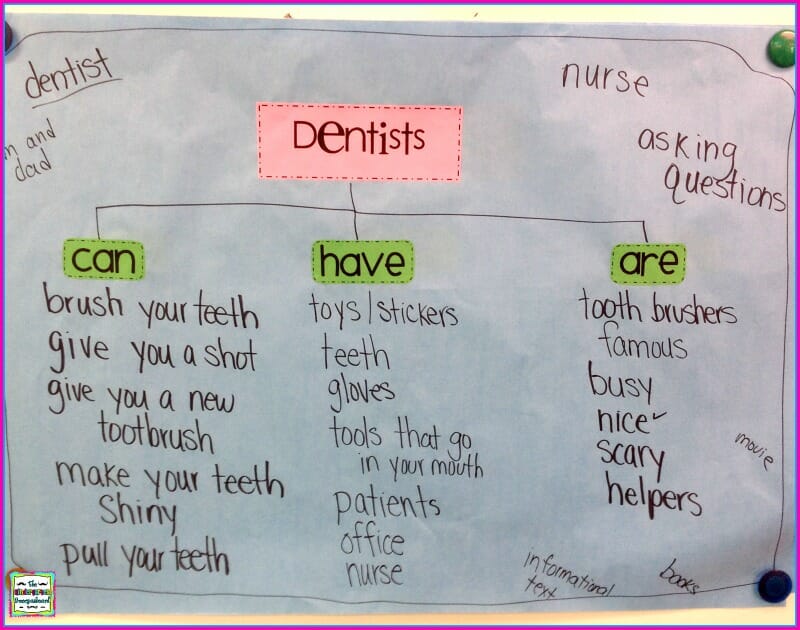 dentist
nurse
and
dad
Dentists
asking
questions
can
brush your teeth
give you a shot
give you a new
tootbrush
make your teeth
Shiny
pull your teeth
have
toys/stickers
teeth
gloves
tools that go
in your mouth
patients
office
nurse
are
tooth brushers
famous
busy
nice
scary
helpers
movie
informational
text
books
The